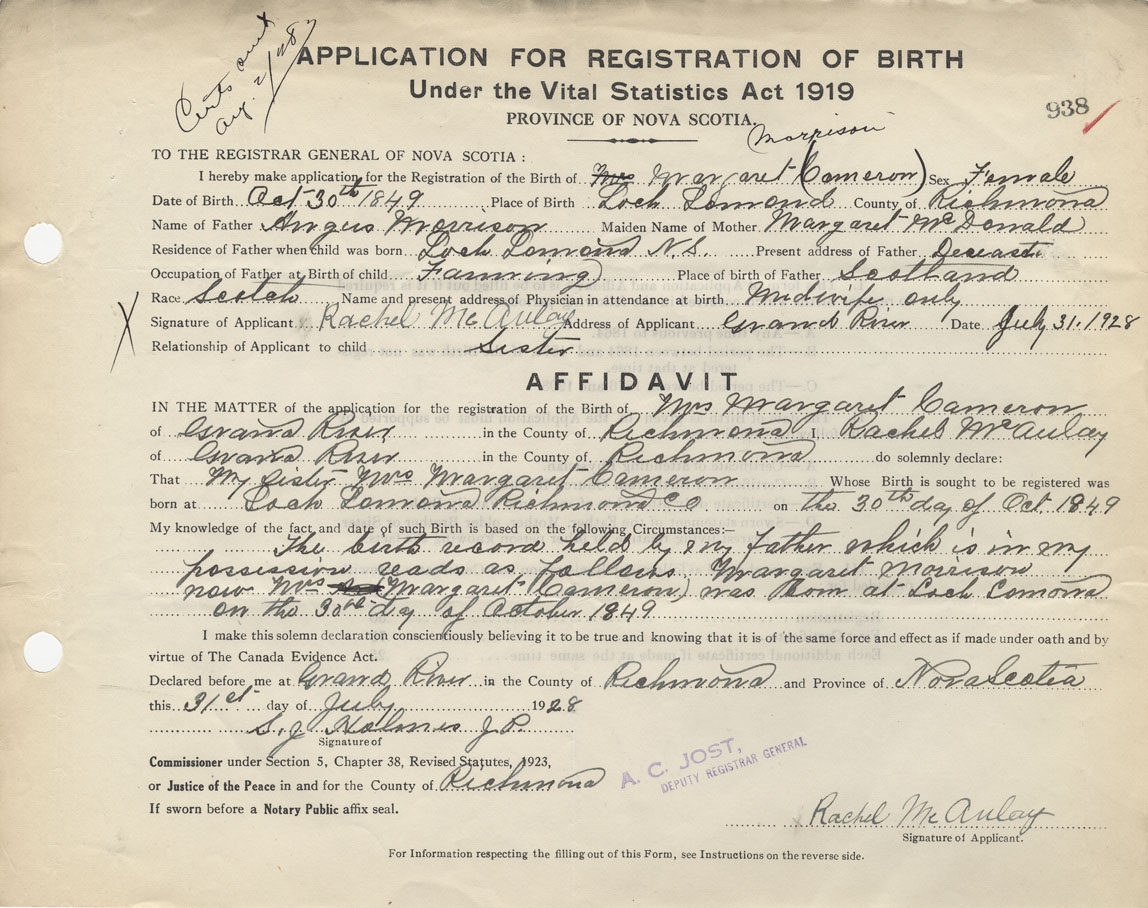 Certs sent
Aug. 2/28
APPLICATION FOR REGISTRATION OF BIRTH
Under the Vital Statistics Act 1919
PROVINCE OF NOVA SCOTIA.
938
Morrison
TO THE REGISTRAR GENERAL OF NOVA SCOTIA :
I hereby make application for the Registration of the Birth of Mrs Margaret (Cameron) Sex Female
Date of Birth Oct 30th 1849 Place of Birth Loch Lomond County of Richmond
Name of Father Angus Morrison Maiden Name of Mother Margaret McDonald
Residence of Father when child was born Loch Lomond N.S. Present address of Father Deceast
Occupation of Father at Birth of child Farming Place of birth of Father Scotland
Race Scotch Name and present address of Physician in attendance at birth Midwife only
X Signature of Applicant Rachel McAulay Address of Applicant Grand River Date July 31. 1928
Relationship of Applicant to child Sister
AFFIDAVIT
IN THE MATTER of the application for the registration of the Birth of Mrs Margaret Cameron
of Grand River in the County of Richmond I Rachel McAulay
of Grand River in the County of Richmond do solemnly declare:
That My Sister Mrs Margaret Cameron Whose Birth is sought to be registered was
born at Loch Lomond Richmond Co on the 30th day of Oct 1849
My knowledge of the fact and date of such Birth is based on the following Circumstances:—
The birth record held by my Father which is in my
possession reads as follows, Margaret Morrison
now Mrs (Margaret Cameron) was Born at Loch Lomond
on the 30th day of October 1849
I make this solemn declaration conscientiously believing it to be true and knowing that it is of the same force and effect as if made under oath and by
virtue of The Canada Evidence Act.
Declared before me at Grand River in the County of Richmond and Province of Nova Scotia
this 31st day of July 1928
S. J. Holmes J.P.
Signature of
Commissioner under Section 5, Chapter 38, Revised Statutes, 1923,
or Justice of the Peace in and for the County of Richmond
If sworn before a Notary Public affix seal.
A. C. JOST,
DEPUTY REGISTRAR GENERAL
Rachel McAulay
Signature of Applicant.
For Information respecting the filling out of this Form, see Instructions on the reverse side.